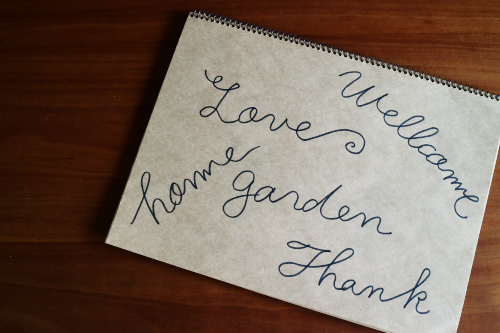 Love
Wellcome
home
garden
Thank